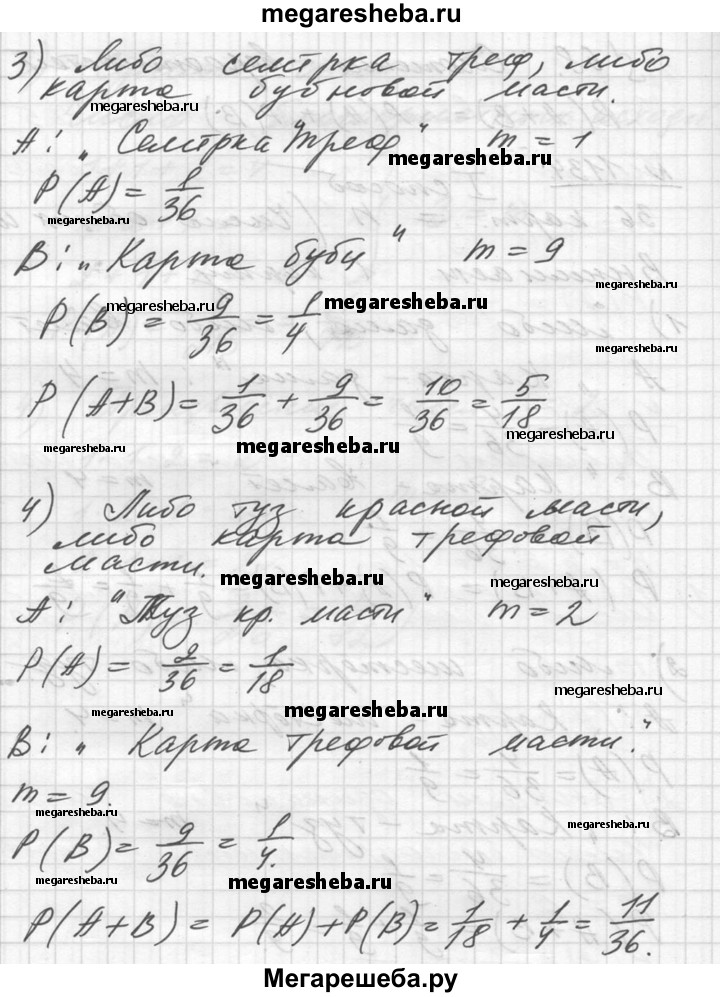 megaresheba.ru
3) Либо семёрка треф, либо
карта бубновой масти.
megaresheba.ru megaresheba.ru
A: „Семёрка треф" m = 1
megaresheba.ru
P(A) = 1/36
megaresheba.ru megaresheba.ru
B: „Карта буби" m = 9
megaresheba.ru
P(B) = 9/36 = 1/4
megaresheba.ru megaresheba.ru
megaresheba.ru
P(A+B) = 1/36 + 9/36 = 10/36 = 5/18
megaresheba.ru megaresheba.ru megaresheba.ru
4) Либо туз красной масти,
либо карта трефовой
масти.
megaresheba.ru megaresheba.ru
A: "Туз кр. масти" m = 2
megaresheba.ru
P(A) = 2/36 = 1/18
megaresheba.ru
megaresheba.ru megaresheba.ru
B: „Карта трефовой масти."
m = 9.
megaresheba.ru megaresheba.ru
P(B) = 9/36 = 1/4.
megaresheba.ru megaresheba.ru
megaresheba.ru
P(A+B) = P(A)+P(B) = 1/18 + 1/4 = 11/36.
Мегарешеба.ру